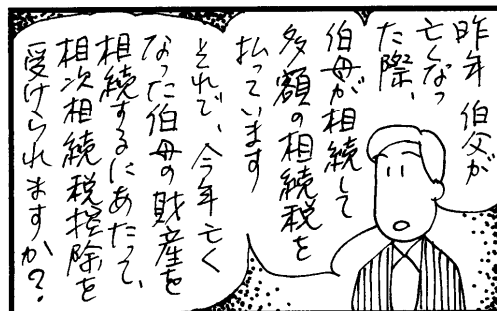 昨年 伯父が
亡くなっ
た際、
伯母が相続して
多額の相続税を
払っています
それで、今年亡く
なった伯母の財産を
相続するにあたって、
相次相続税控除を
受けられますか？